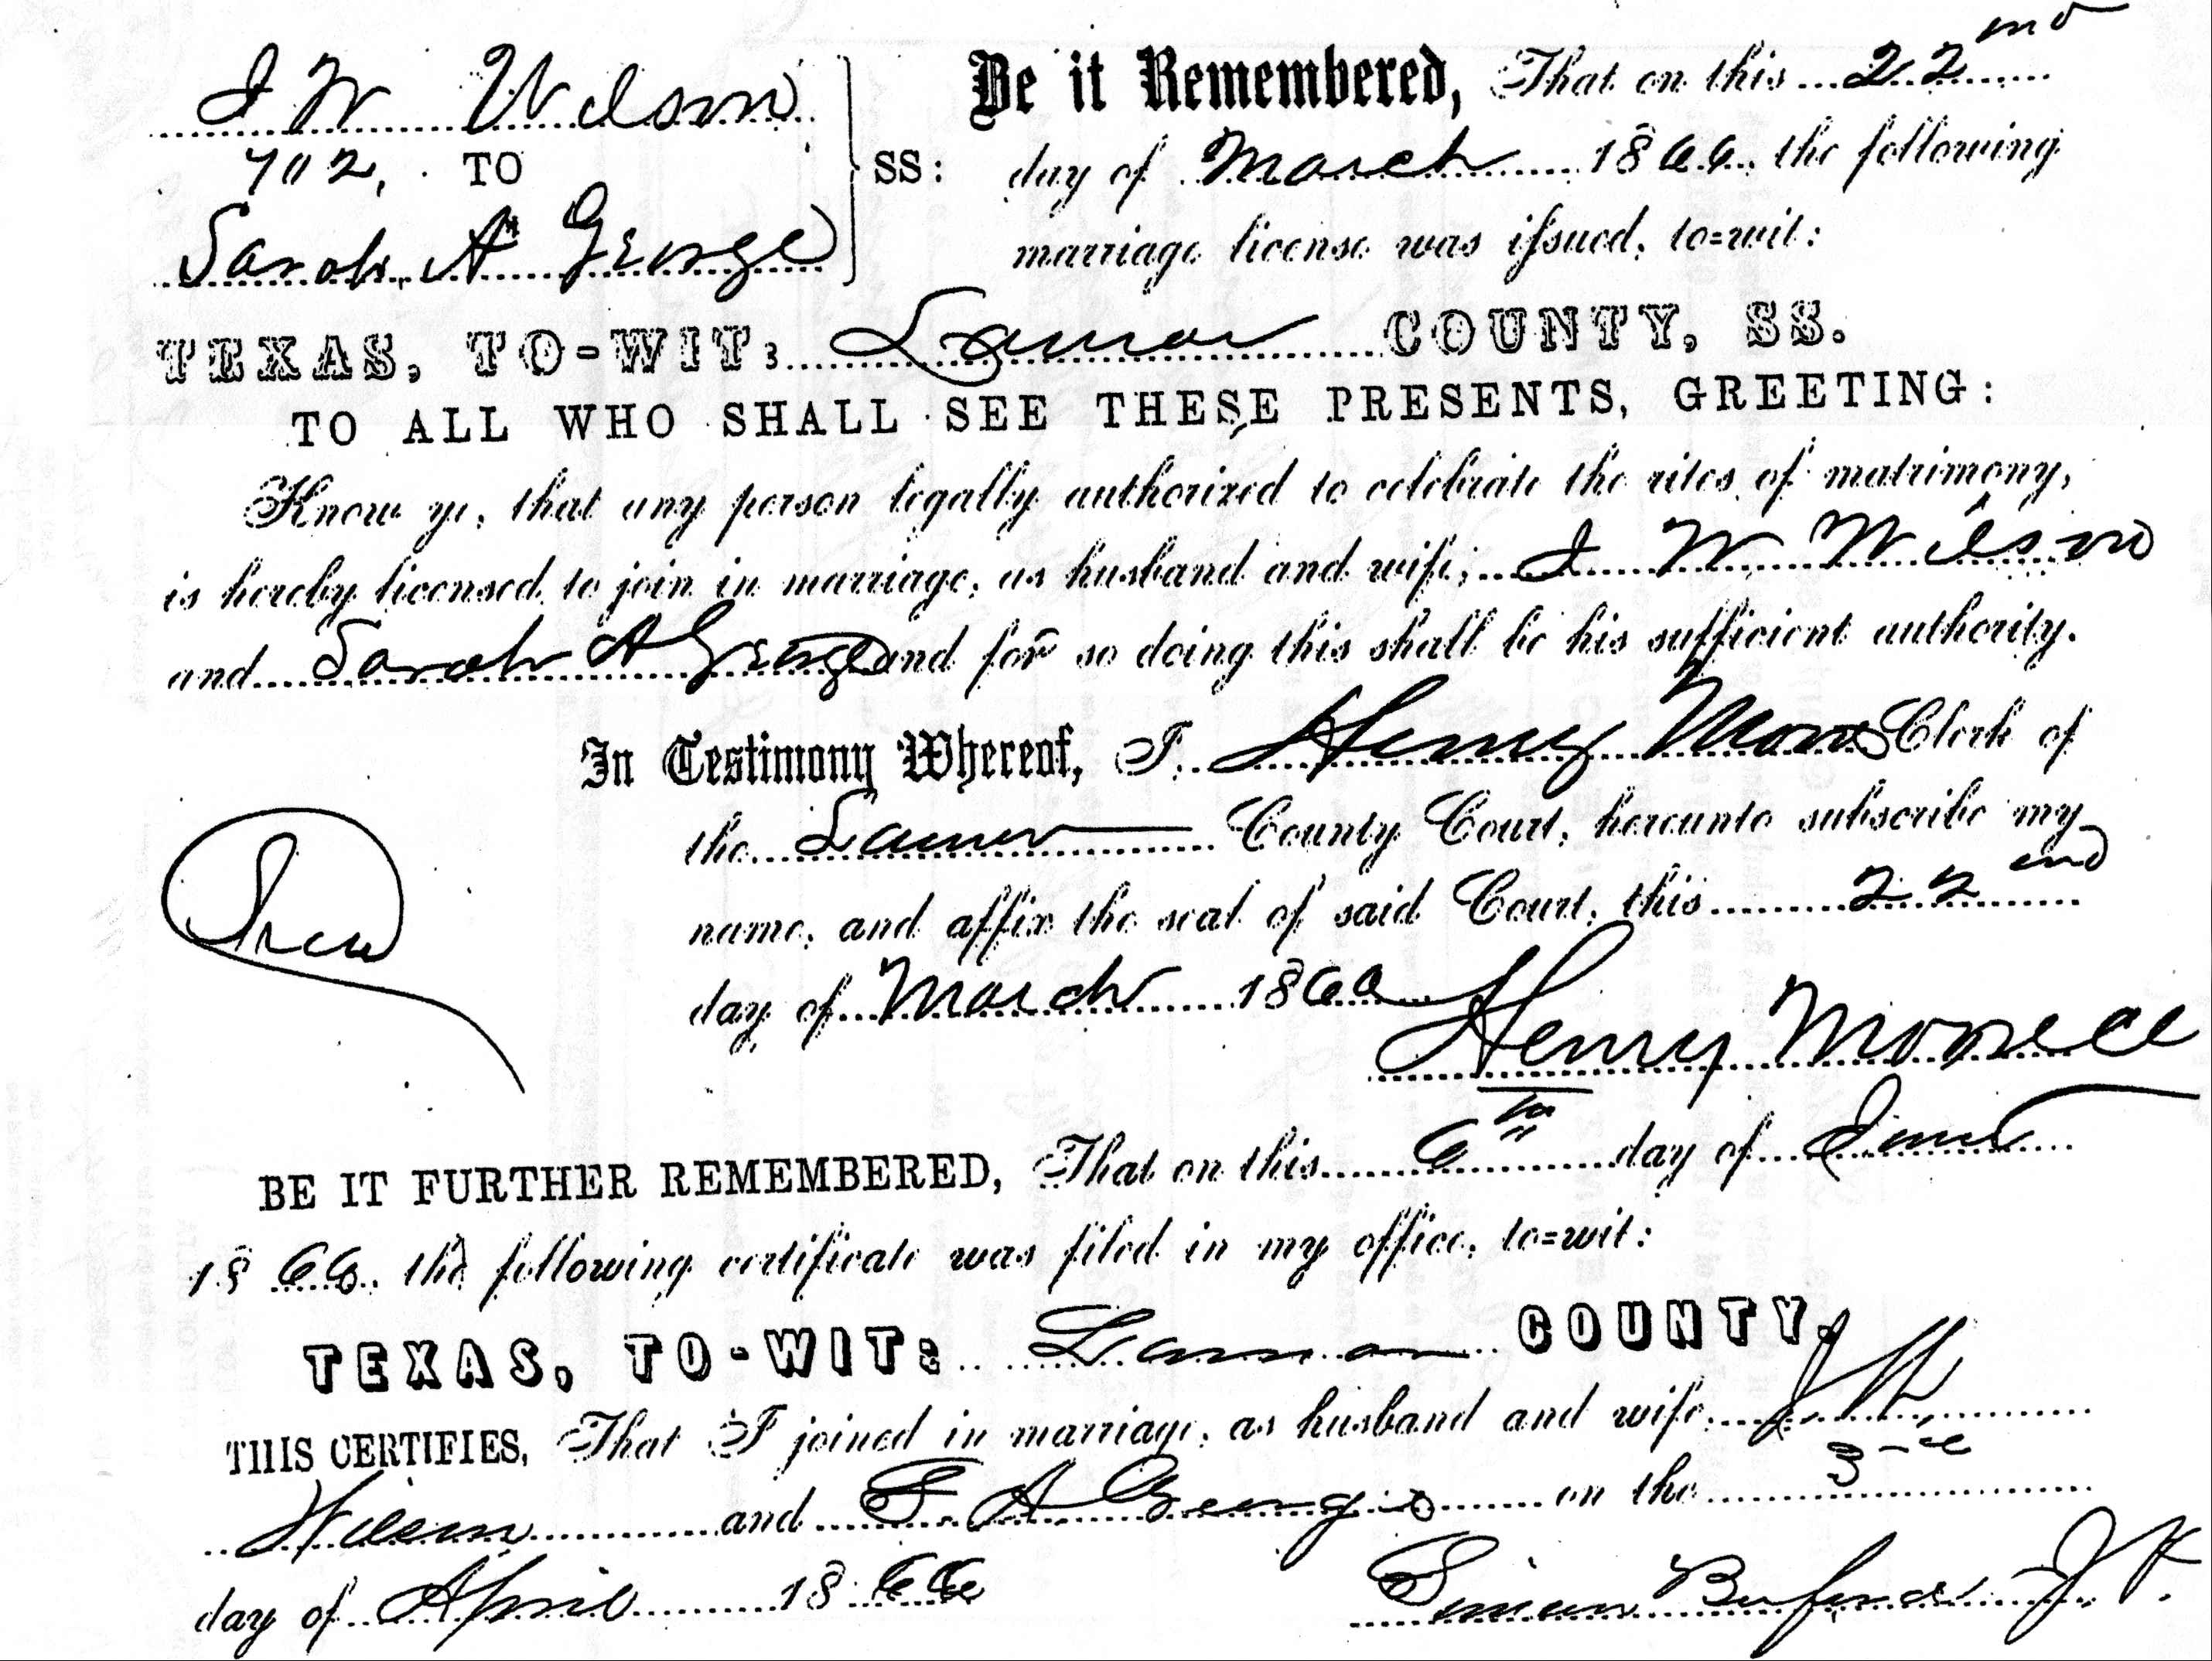 J W Wilson
702, TO
Sarah A George
SS:
Be it Remembered, That on this 22nd
day of March 1866, the following
marriage license was issued, to=wit:
TEXAS, TO-WIT: Lamar COUNTY, SS.
TO ALL WHO SHALL SEE THESE PRESENTS, GREETING:
Know ye, that any person legally authorized to celebrate the rites of matrimony,
is hereby licensed to join in marriage, as husband and wife, J W Wilson
and Sarah A George and for so doing this shall be his sufficient authority.
In Testimony Whereof, I, Henry Clerk of
the Lamar County Court, hereunto subscribe my
name, and affix the seal of said Court, this 22nd
day of March 1866
Henry
BE IT FURTHER REMEMBERED, That on this 6th day of June
1866, the following certificate was filed in my office, to=wit:
TEXAS, TO-WIT: Lamar COUNTY,
THIS CERTIFIES, That I joined in marriage, as husband and wife, J W,
Wilson and S A George on the 3
day of April 1866
Simeon Buford J P.